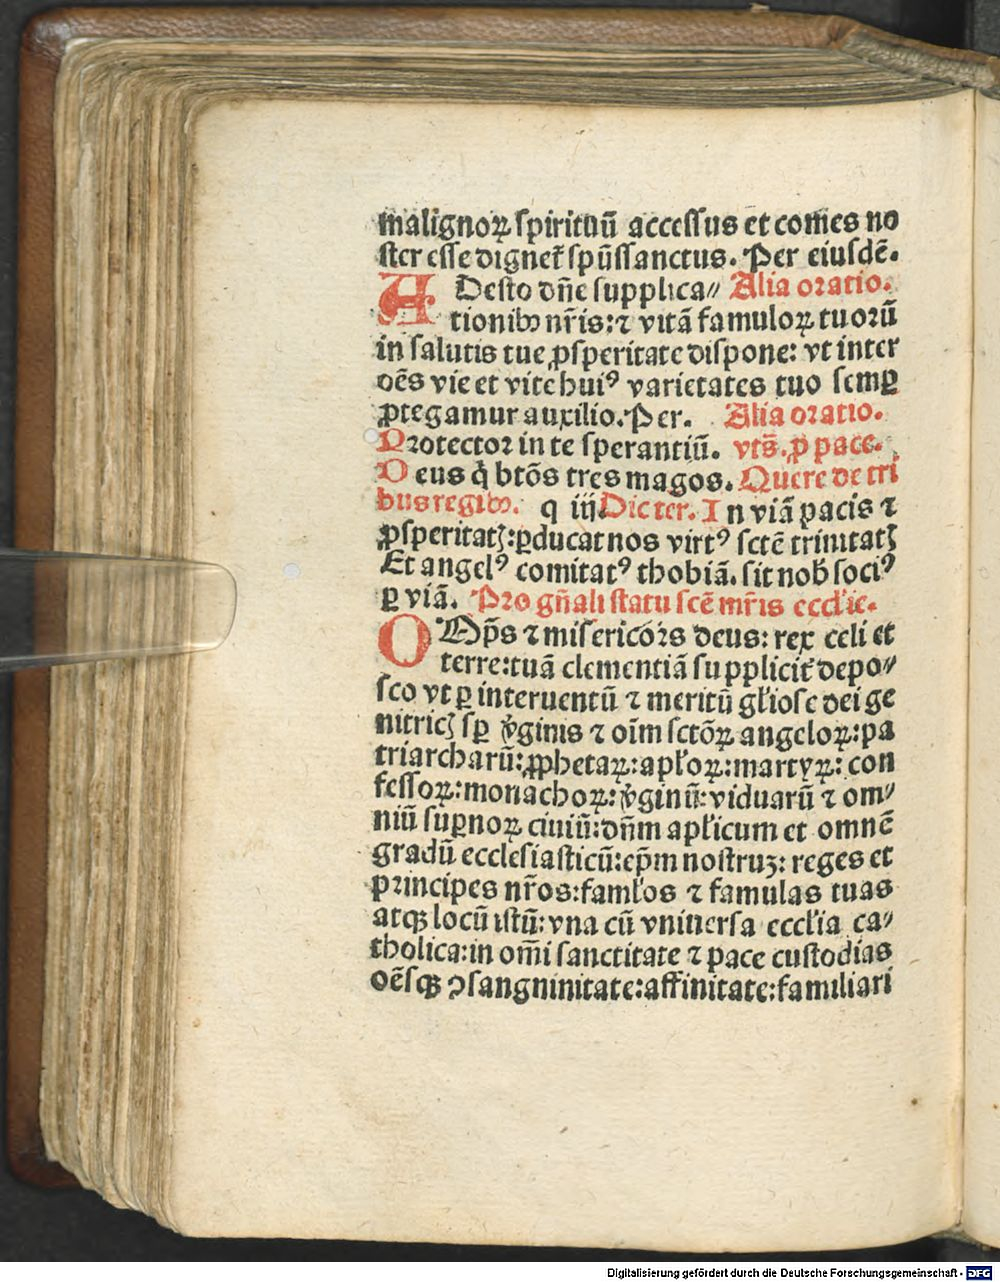 malignoꝝ spirituū accessus et comes no
ster esse dignet᷑ spūssanctus. Per eiusdē.
ADesto dn̄e supplica⸗ Alia oratio.
tionibꝰ nr̄is: ⁊ vitā famuloꝝ tuoꝛū
in salutis tue ꝓsperitate dispone: vt inter
oēs vie et vite huiꝰ varietates tuo semꝑ
ꝓtegamur auxilio. Per. Alia oratio.
Protectoꝛ in te sperantiū. vts̄. ꝓ pace.
Deus q̇ btōs tres magos. Quere de tri
bus regibꝰ. q iij Dic ter. In viā pacis ⁊
ꝓsperitatꝭ: ꝑducat nos virtꝰ sctē trinitatꝭ
Et angelꝰ comitatꝰ thobiā. sit nob̄ sociꝰ
ꝑ viā. Pro gn̄ali statu scē mr̄is eccl̄ie.
OMp̄s ⁊ misericoꝛs deus: rex celi et
terre: tuā clementiā suppliciť depo⸗
sco vt ꝑ interuentū ⁊ meritū gl̄iose dei ge
nitricꝭ sꝑ v̓ginis ⁊ oīm sctōꝝ angeloꝝ: pa
triarcharū: ꝓphetaꝝ: apl̄oꝝ: martyꝝ: con
fessoꝝ: monachoꝝ: v̓ginū: viduarū ⁊ om⸗
niū suꝑnoꝝ ciuiū: dn̄m apl̄icum et omnē
gradū ecclesiasticū: ep̄m nostruꝫ: reges et
pꝛincipes nr̄os: faml̄os ⁊ famulas tuas
atqꝫ locū istū: vna cū vniuersa eccl̄ia ca⸗
tholica: in om̄i sanctitate ⁊ pace custodias
oēsqꝫ ꝯsanguinitate: affinitate: familiari